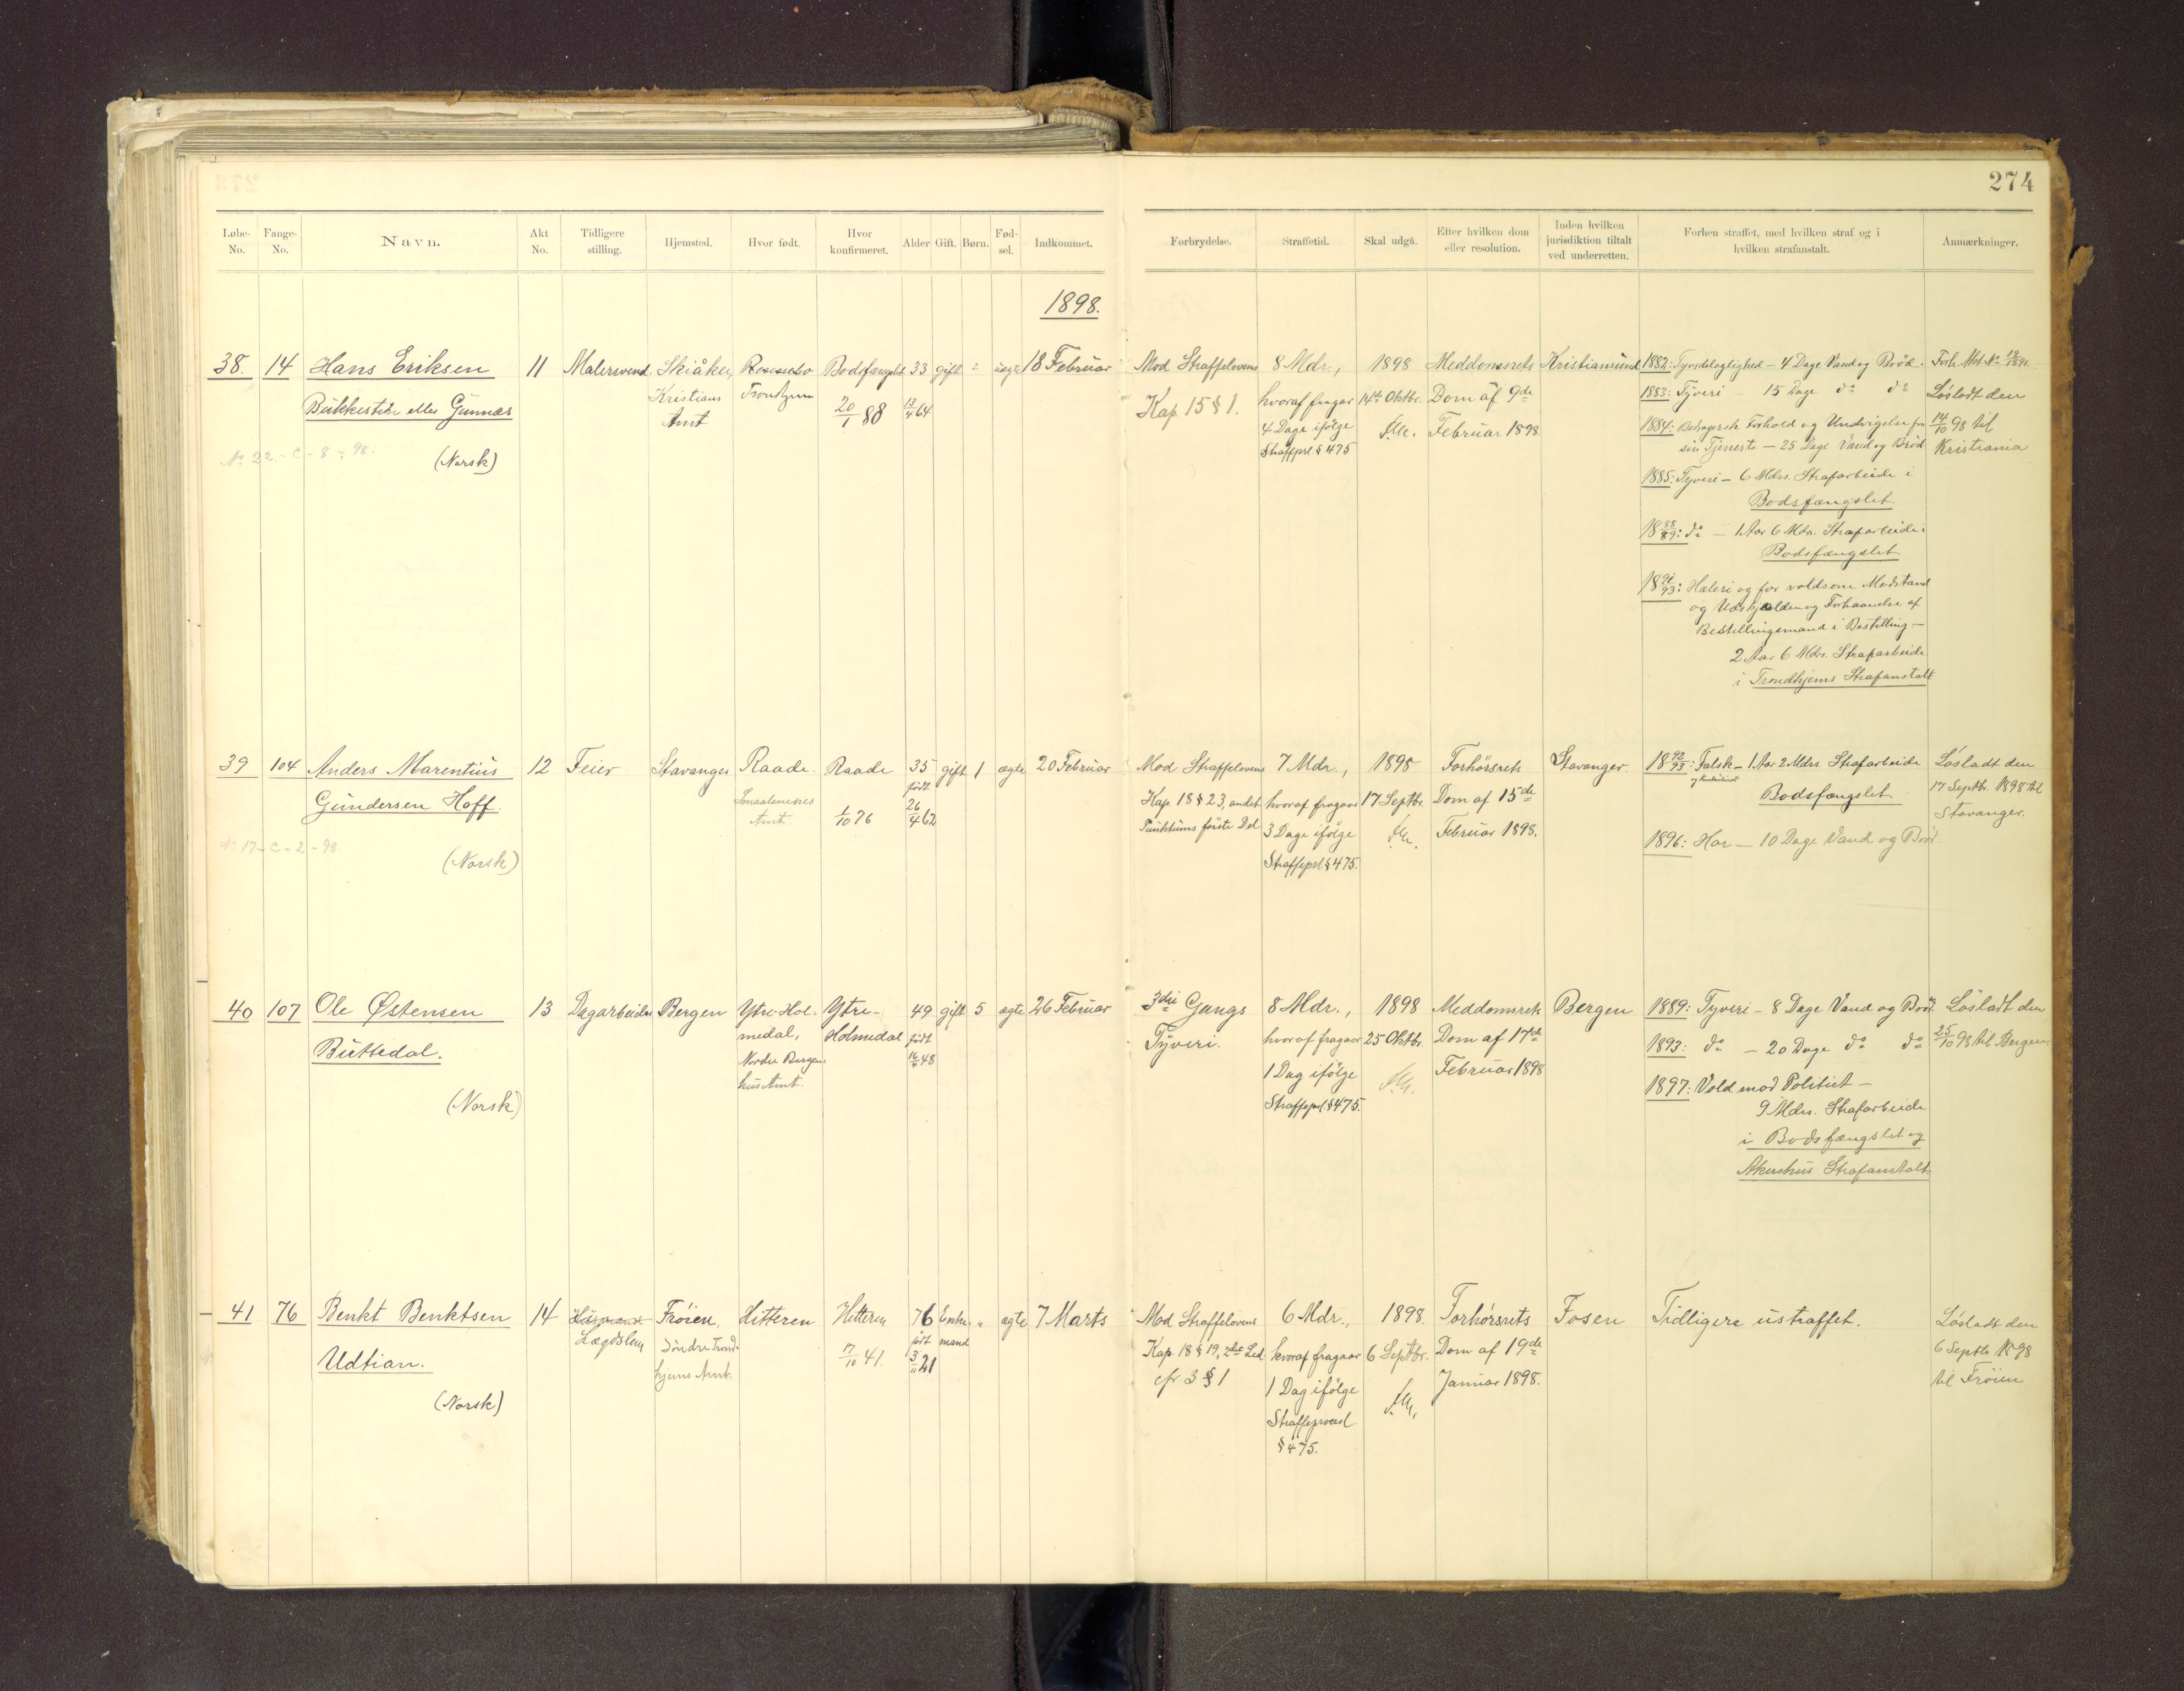 274
Løbe-No. Fange-No. Navn. Akt No. Tidligere stilling. Hjemsted. Hvor født. Hvor konfirmeret. Alder Gift. Børn. Fød-sel. Indkommet.
Forbrydelse. Straffetid. Skal udgå. Efter hvilken dom eller resolution. Inden hvilken jurisdiktion tiltalt ved underretten. Forhen straffet, med hvilken straf og i hvilken strafanstalt. Anmærkninger.
1898.
38. 14 Hans Eriksen
Bukkestien eller Gunnæs
(Norsk)
No 22 - C - 8 - 98.
11 Malersvend
Skiåker,
Kristians
Amt
Trondhjem
Bodsfængslet
20/1 88
33
13/4 64
gift
uægte
18 Februar
Mod Straffelovens
Kap. 15 § 1.
8 Mdr.,
hvoraf fragaar
4 Dage ifølge
Straffprl § 475
1898
14de Oktbr.
Meddomsrets
Dom af 9de
Februar 1898
Kristiansund
1882: Tyvsdelagtighed - 4 Dage Vand og Brød.
1883: Tyveri - 15 Dage do do
1884: Bedragersk Forhold og Undvigelse fra
sin Tjeneste - 25 Dage Vand og Brød
1885: Tyveri - 6 Mdrs. Strafarbeide i
Bodsfængslet.
18 88/89: do - 1 Aar 6 Mdr. Strafarbeide i
Bodsfængslet
18 91/93: Hæleri og for voldsom Modstand
og Udskjælden og Forhaanelse af
Bestillingsmand i Bestilling -
2 Aar 6 Mdrs. Strafarbeide
i Trondhjems Strafanstalt
Løsladt den
14/10 98 til
Kristiania
39 104 Anders Marentius
Gundersen Hoff.
(Norsk)
No 17 - C - 2 - 98.
12 Feier
Stavanger
Raade.
Smaalenenes
Amt.
Raade
1/10 76
35
født
26/4 62
gift 1 ægte 20 Februar
Mod Straffelovens
Kap. 18 § 23, andet
Punktums første Del
7 Mdr.,
hvoraf fragaar
3 Dage ifølge
Straffeprl § 475.
1898
17 Septbr.
Forhørsrets
Dom af 15de
Februar 1898.
Stavanger.
18 92/93: Falsk - 1 Aar 2 Mdrs. Strafarbeide
Bodsfængslet.
1896: Hor - 10 Dage Vand og Brød
Løsladt den
17 Septbr. 1898 til
Stavanger.
40 107 Ole Østensen
Buttedal.
(Norsk)
13 Dagarbeider
Bergen
Ytre-Hol-
medal,
Nordre Bergen-
hus Amt.
Ytre-
Holmedal
49
født
16/4 48
gift 5 ægte 26 Februar
3die Gangs
Tyveri.
8 Mdr.,
hvoraf fragaar
1 Dag ifølge
Straffeprl § 475.
1898
25 Oktbr.
Meddomsrets
Dom af 17de
Februar 1898
Bergen
1889: Tyveri - 8 Dage Vand og Brød.
1893: do - 20 Dage do do
1897: Vold mod Politiet -
9 Mdrs. Strafarbeide
i Bodsfængslet og
Akershus Strafanstalt.
Løsladt den
25/10 98 til Bergen.
41 76 Benkt Benktsen
Udtian.
(Norsk)
14 Husmand
Lægdslem
Frøien,
Søndre Trond-
hjems Amt.
Hitteren
Hitteren
17/10 41.
76
født
3/11 21
Enke-
mand
" ægte 7 Marts
Mod Straffelovens
Kap. 18 § 19, 2det Led
cfr 3 § 1
6 Mdr.,
hvoraf fragaar
1 Dag ifølge
Straffeprocesl
§ 475.
1898.
6 Septbr.
Forhørsrets
Dom af 19de
Januar 1898.
Fosen
Tidligere ustraffet.
Løsladt den
6 Septbr. 1898
til Frøien